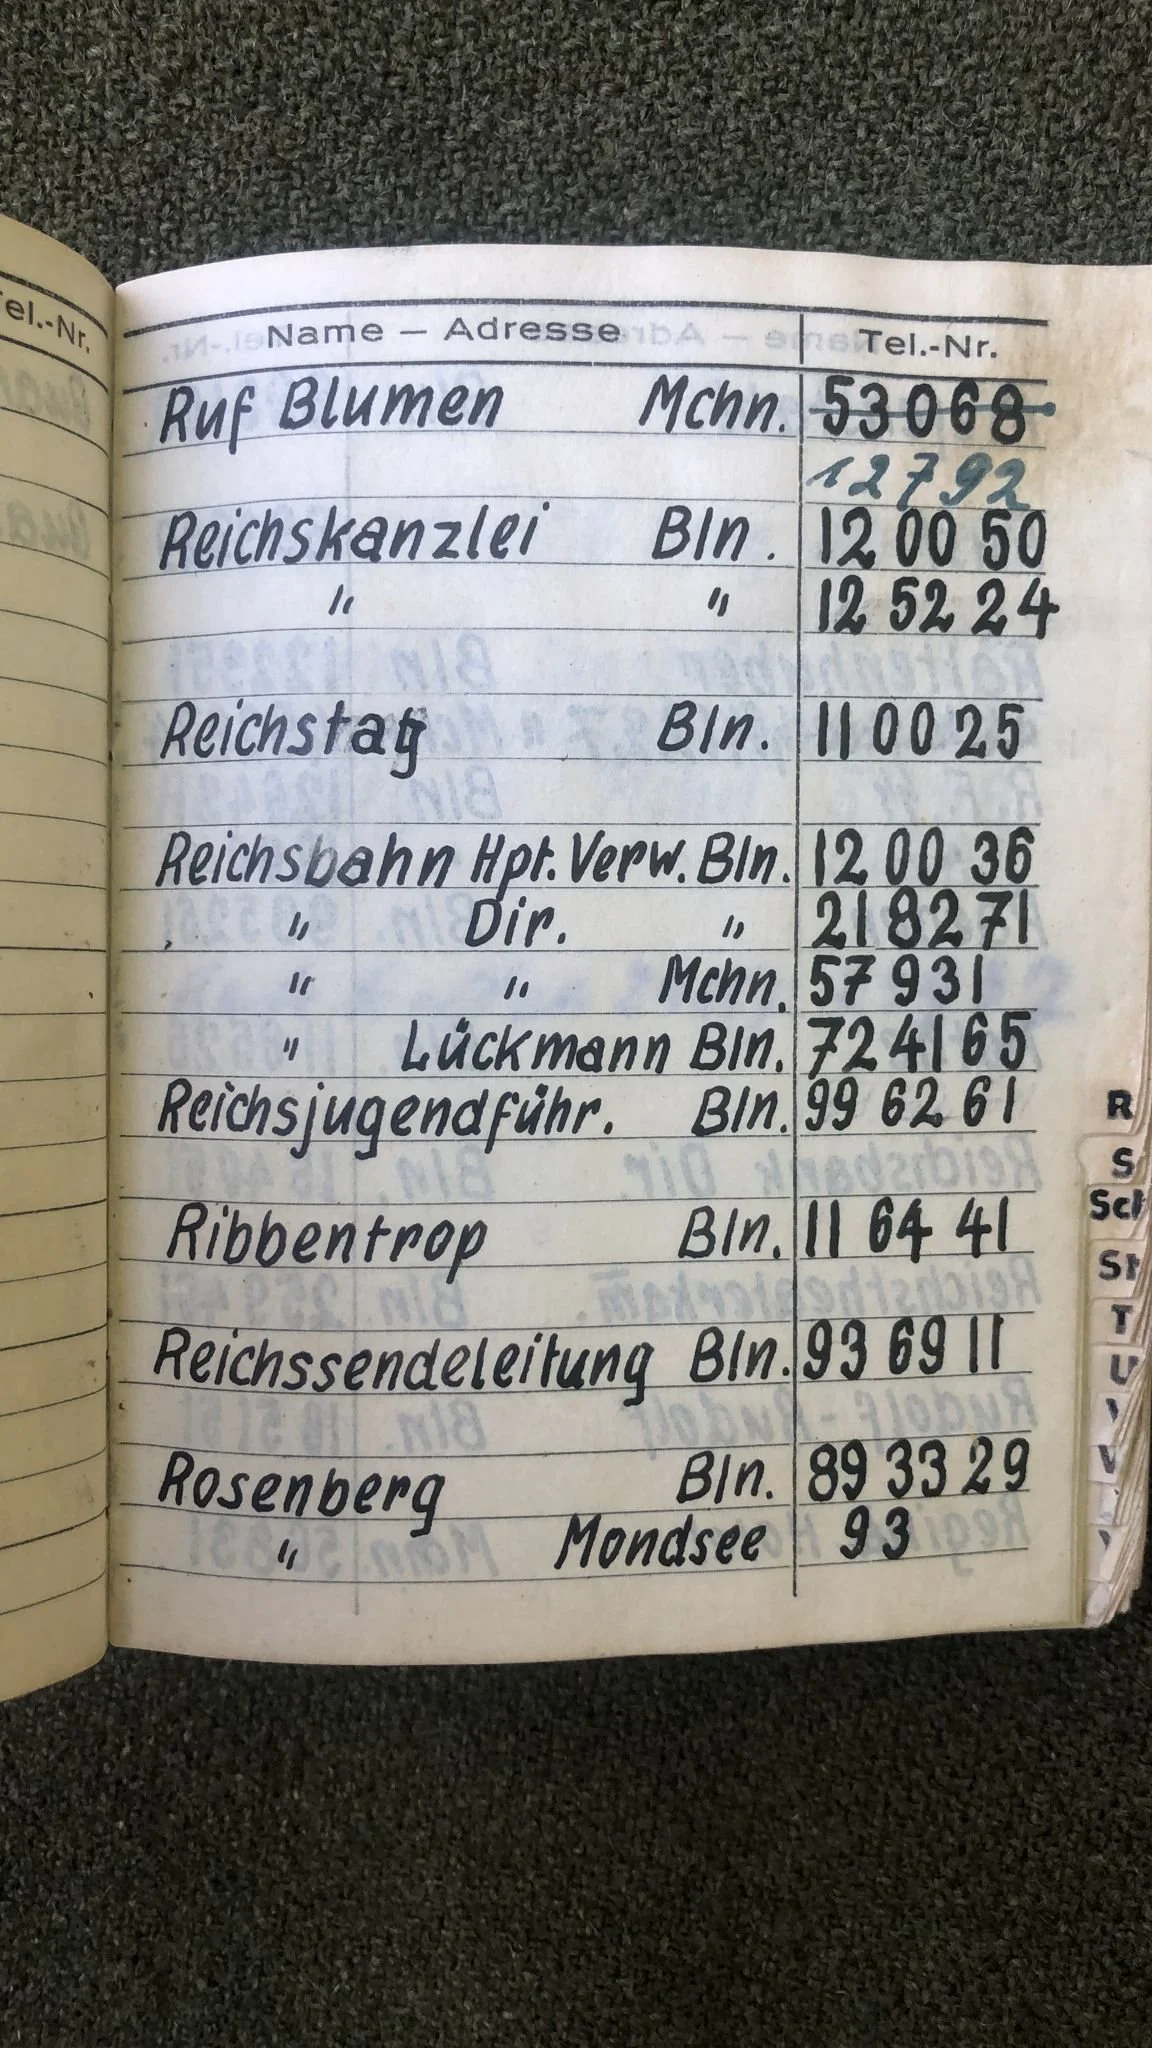 Tel.-Nr.
Name – Adresse Tel.-Nr.
Ruf Blumen Mchn. 53068
12792
Reichskanzlei Bln. 12 00 50
" " 12 52 24
Reichstag Bln. 11 00 25
Reichsbahn Hpt. Verw. Bln. 12 00 36
" Dir. " 21 82 71
" " Mchn. 57931
" Lückmann Bln. 72 41 65
Reichsjugendführ. Bln. 99 62 61
Ribbentrop Bln. 11 64 41
Reichssendeleitung Bln. 93 69 11
Rosenberg Bln. 89 33 29
" Mondsee 93
R
S
Sch
St
T
U
V